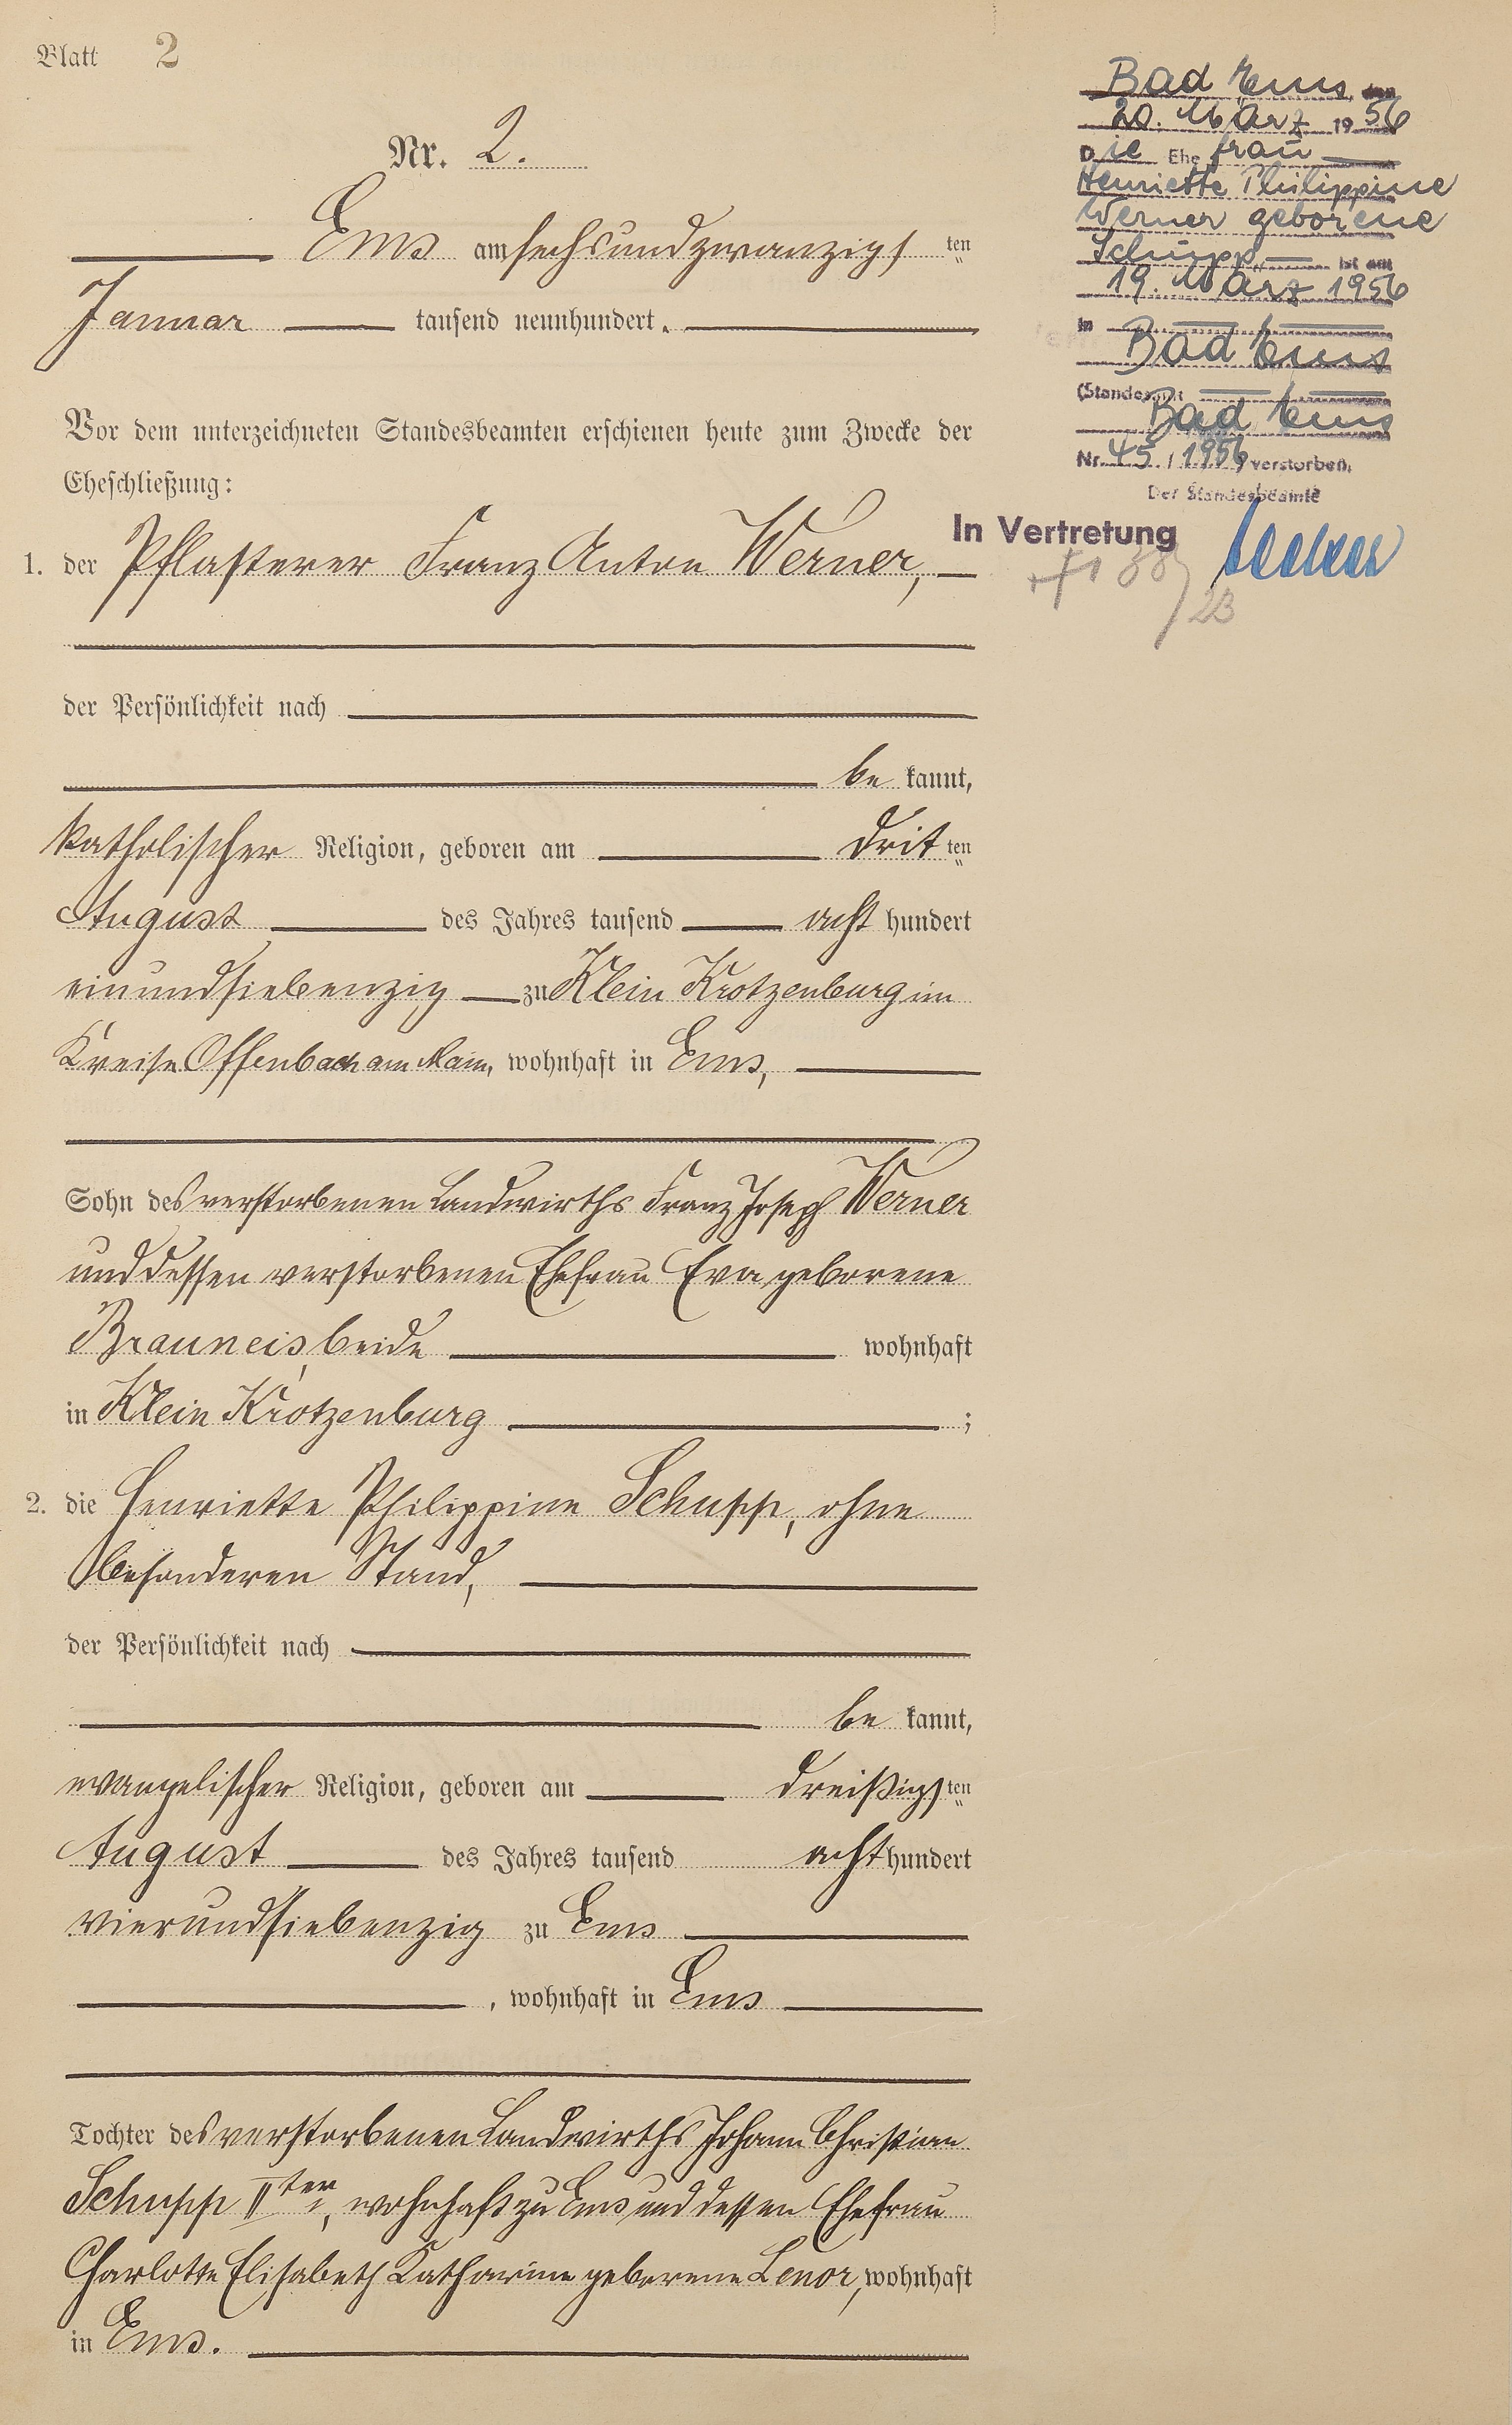 Blatt 2
Nr. 2.
Ems am sechsundzwanzigs ten
Januar tausend neunhundert.
Vor dem unterzeichneten Standesbeamten erschienen heute zum Zwecke der
Eheschließung:
1. der Pflasterer Franz Anton Werner,
der Persönlichkeit nach
be kannt,
katholischer Religion, geboren am drit ten
August des Jahres tausend acht hundert
einundsiebenzig zu Klein Krotzenburg im
Kreise Offenbach am Main, wohnhaft in Ems,
Sohn des verstorbenen Landwirths Franz Joseph Werner
und dessen verstorbenen Ehefrau Eva geborene
Brauneis, beide wohnhaft
in Klein Krotzenburg ;
2. die Henriette Philippine Schupp, ohne
besonderen Stand,
der Persönlichkeit nach
be kannt,
evangelischer Religion, geboren am dreißigs ten
August des Jahres tausend acht hundert
vierundsiebenzig zu Ems
, wohnhaft in Ems
Tochter des verstorbenen Landwirths Johann Christian
Schupp IIter, wohnhaft zu Ems und dessen Ehefrau
Charlotte Elisabeth Katharine geborene Lenor, wohnhaft
in Ems.
Bad Ems, den
20. März 1956
Die Ehefrau
Henriette Philippine
Werner geborene
Schupp ist am
19. März 1956
in
Bad Ems
(Standesamt
Bad Ems
Nr. 45 / 1956 verstorben.
Der Standesbeamte
In Vertretung